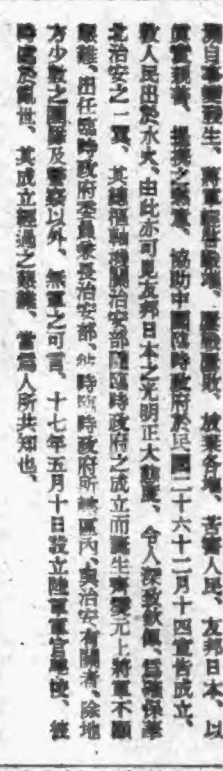 獨自本戰發生、將軍誼甘戰場、屢戰屢敗、放棄各地、苦害人民、友邦日本、以
眞實親善、提携之無意、協助中國臨時政府於民國二十六十二月十四宣告成立、
救人民出於水火、由此亦可見友邦日本之光明正大態度、令人深致欽佩、爲確保華
北治安之一翼、其總樞軸機關治安部隨臨時政府之成立而誕生齊燮元上將軍不顧
艱難、出任臨時政府委員兼長治安部、時臨時政府所轄區內、與治安有關者、除地
方少數之團隊及警察以外、無軍之可言、十七年五月十日設立陸軍軍官學校、
處於亂世、其成立經過之艱難、當爲人所共知也、